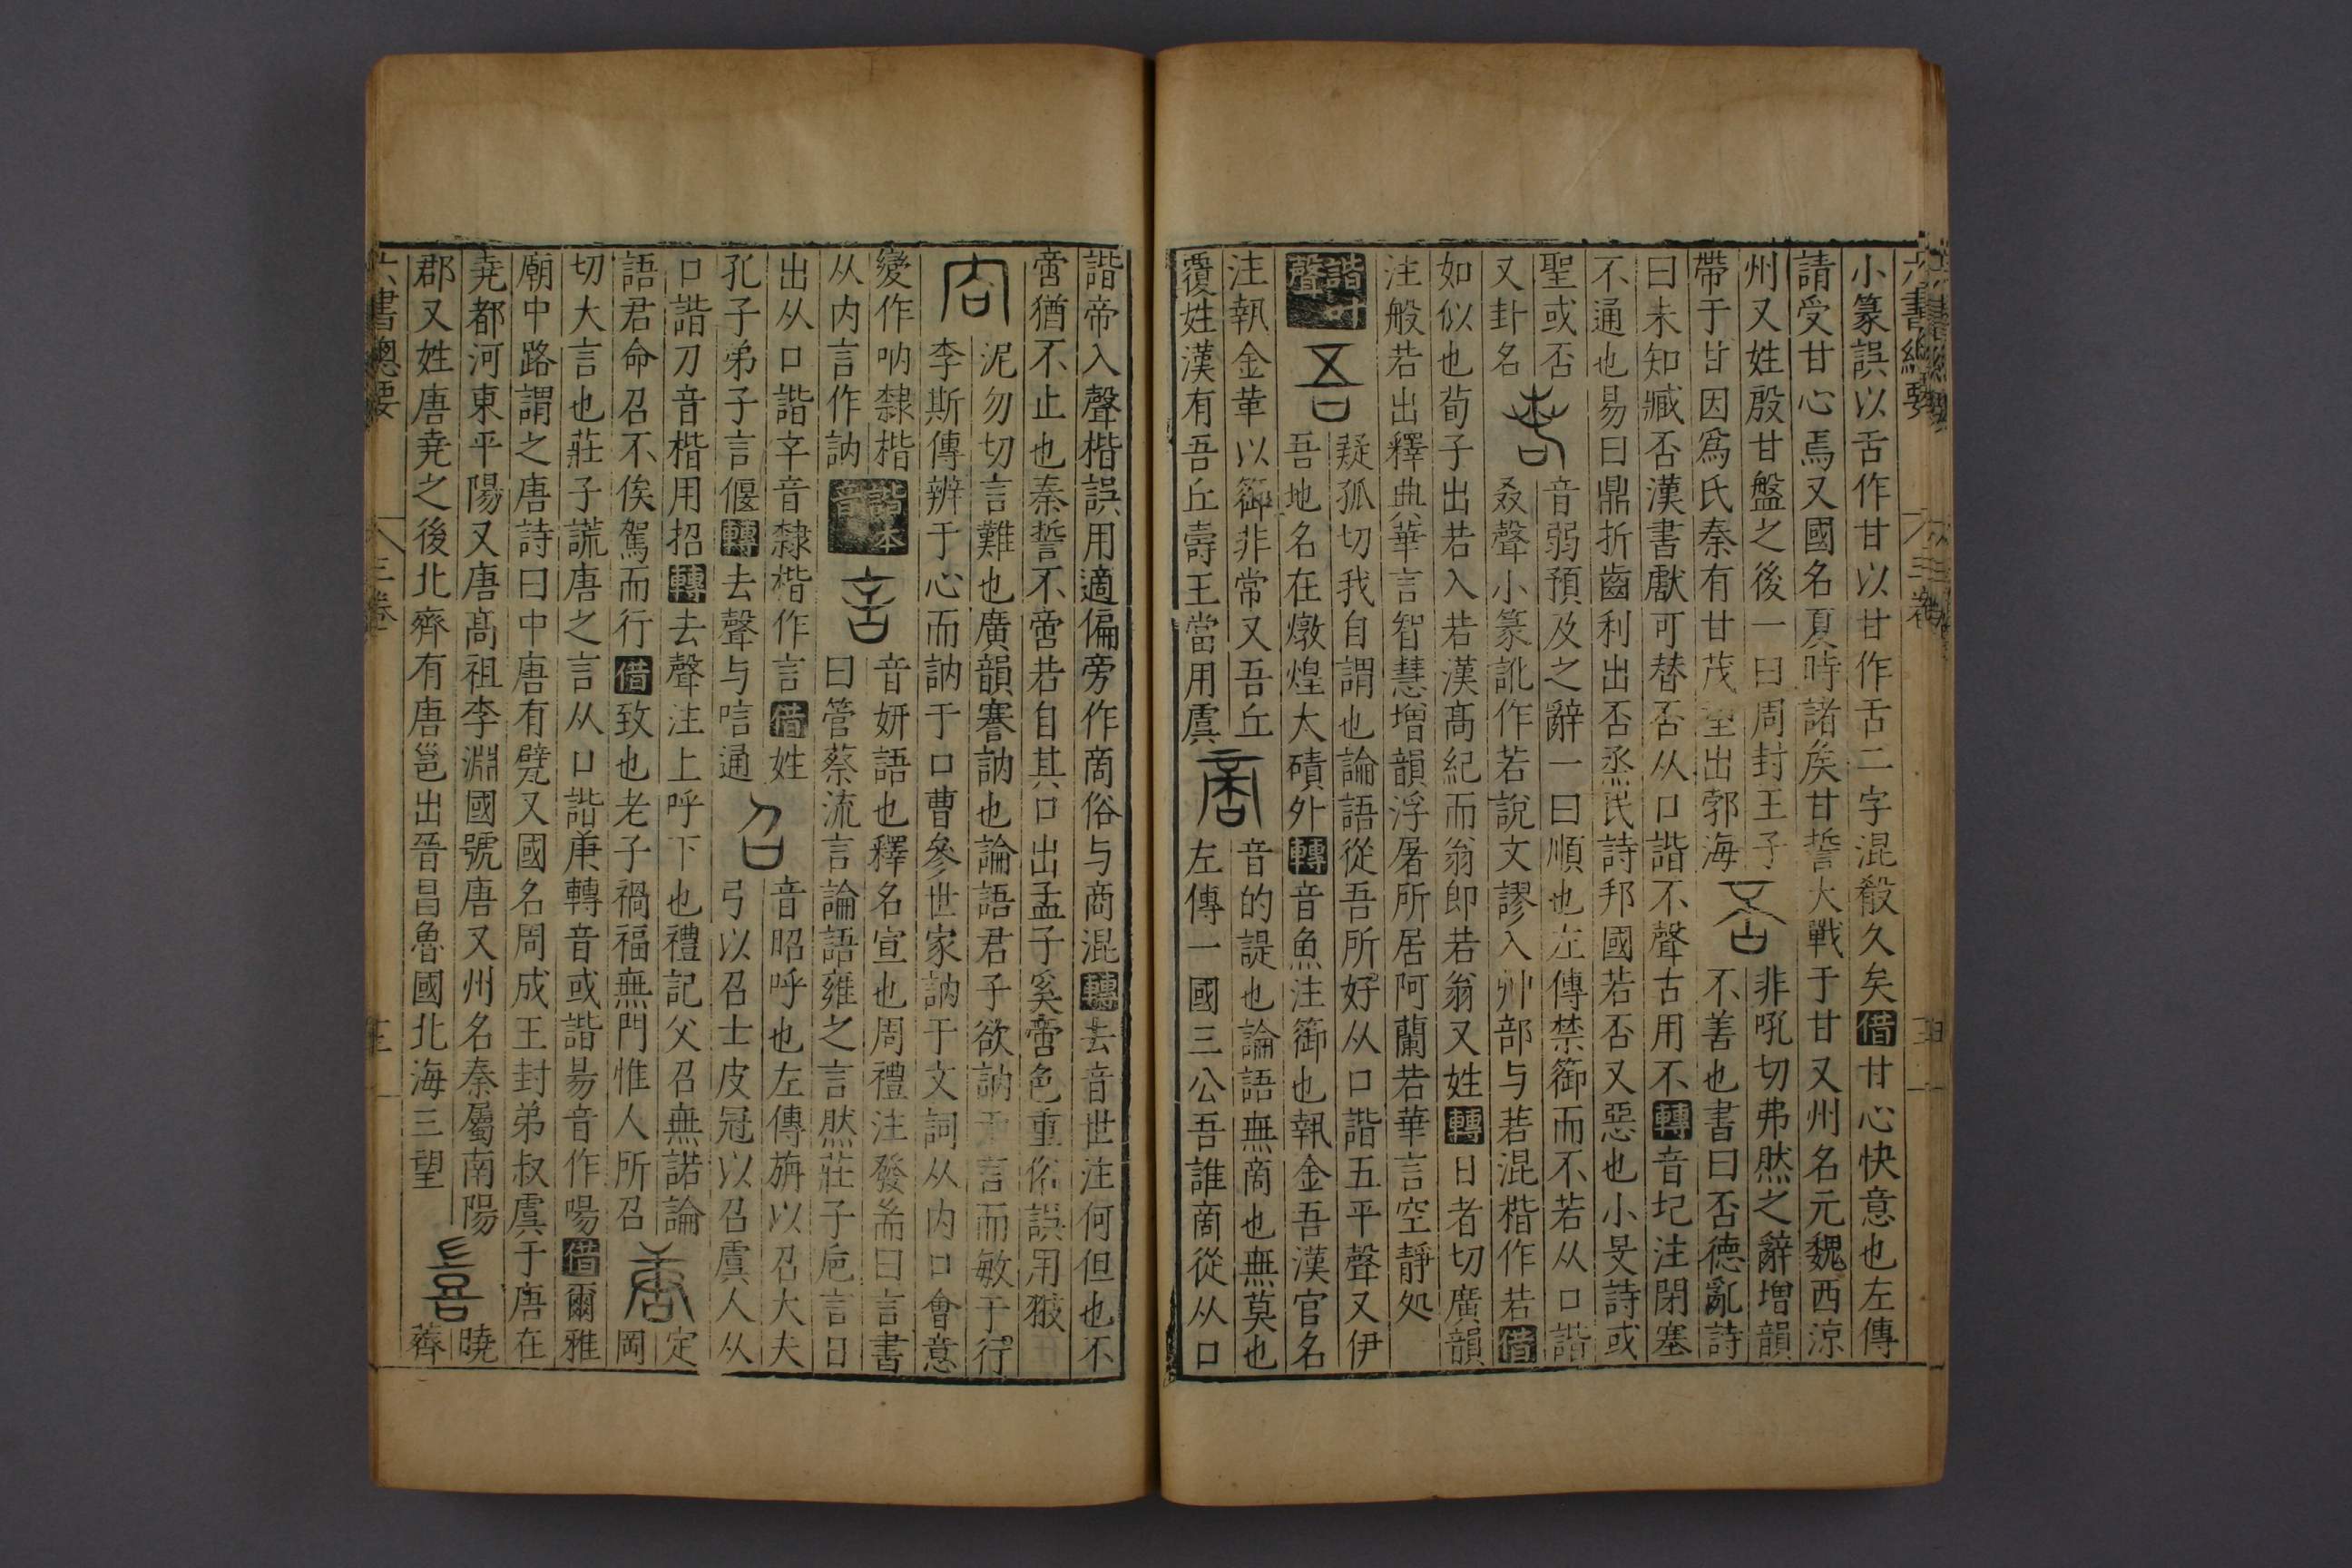 六書總要
三卷
小篆誤以舌作甘以甘作舌二字混殽久矣借甘心快意也左傳
請受甘心焉又國名夏時諸矦甘誓大戰于甘又州名元魏西涼
州又姓殷甘盤之後一曰周封王子
帶于甘因爲氏秦有甘茂 出郭海
否非吼切弗然之辭增韻
不善也書曰否德亂詩
曰未知臧否漢書獻可替否从口諧不聲古用不轉音圮注閉塞
不通也易曰鼎折齒利出否烝民詩邦國若否又惡也小旻詩或
聖或否
又卦名
音弱預及之辭一曰順也左傳禁御而不若从口諧
叒聲小篆訛作若說文謬入艸部与若混楷作若借
如似也荀子出若入若漢高紀而翁即若翁又姓轉日者切廣韻
注般若出釋典華言智慧增韻浮屠所居阿蘭若華言空靜処
諧付
聲
吾疑狐切我自謂也論語從吾所好从口諧五平聲又伊
吾地名在燉煌大磧外轉音魚注御也執金吾漢官名
注執金革以御非常又吾丘
覆姓漢有吾丘壽王當用虞
啇音的諟也論語無啇也無莫也
左傳一國三公吾誰啇從从口
諧帝入聲楷誤用適偏旁作啇俗与商混轉去音世注何但也不
啻猶不止也秦誓不啻若自其口出孟子奚啻色重俗誤用
㕯泥勿切言難也廣韻謇訥也論語君子欲訥于言而敏于行
李斯傳辨于心而訥于口曹參世家訥于文詞从内口會意
變作吶隸楷
从内言作訥
諧本
音
音妍語也釋名宣也周禮注發耑曰言書
曰管蔡流言論語雍之言然莊子巵言日
出从口諧辛音隸楷作言借姓
孔子弟子言偃轉去聲与唁通
召音昭呼也左傳旃以召大夫
弓以召士皮冠以召虞人从
口諧刀音楷用招轉去聲注上呼下也禮記父召無諾論
語君命召不俟駕而行借致也老子禍福無門惟人所召
唐定
岡
切大言也莊子謊唐之言从口諧庚轉音或諧昜音作啺借爾雅
廟中路謂之唐詩曰中唐有甓又國名周成王封弟叔虞于唐在
堯都河東平陽又唐高祖李淵國號唐又州名秦屬南陽
郡又姓唐堯之後北齊有唐邕出晉昌魯國北海三望
曉
薺
六書總要
三卷